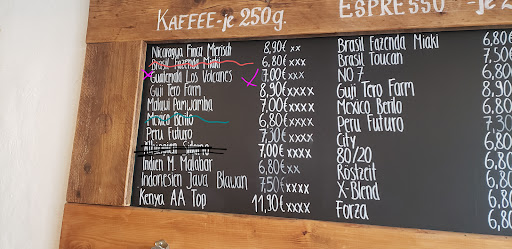 KAFFEE - je 250g.
Nicaragua Finca Mierisch 8,90€ xx
Brasil Fazenda Miaki 6,80€ xxx
Guatemala Los Volcanes 7,00€ xxx
Guji Tero Farm 8,90€ xxxx
Malawi Pamwamba 7,00€ xxxx
Mexico Berilo 6,80€ xxxx
Peru Futuro 7,30€ xxxx
Äthiopien Sidamo 7,00€ xxxx
Indien M. Malabar 6,80€ xx
Indonesien Java Blawan 7,50€ xxxx
Kenya AA Top 11,90€ xxxx
ESPRESSO - je 2
Brasil Fazenda Miaki 6,80
Brasil Toucan 7,50
NO 7 6,80
Guji Tero Farm 8,90
Mexico Berilo 6,80
Peru Futuro 7,30
City 6,80
80/20 6,80
Röstzeit 6,80
X-Blend 6,80
Forza 6,80